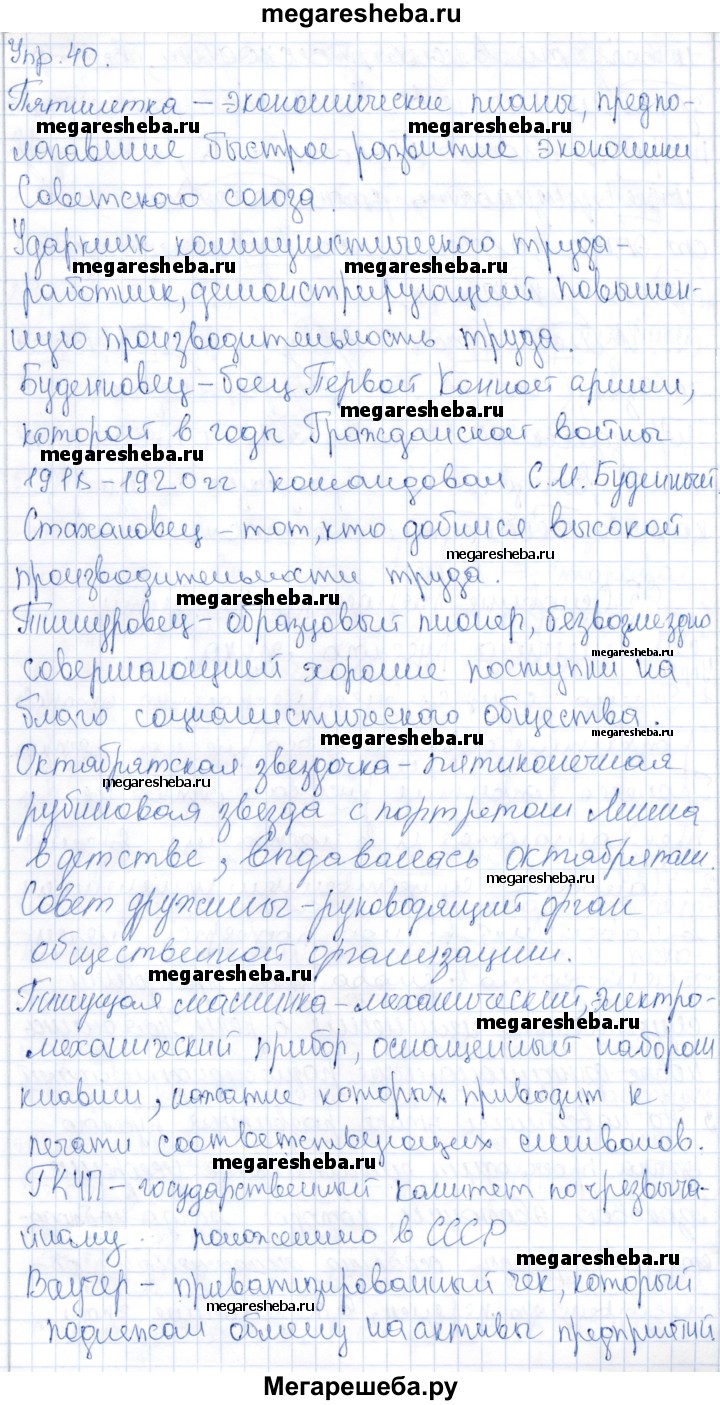 megaresheba.ru
Упр. 40.
Пятилетка – экономические планы, предпо-
megaresheba.ru megaresheba.ru
лагавшие быстрое развитие экономики
Советского союза.
Ударник коммунистического труда –
megaresheba.ru megaresheba.ru
работник, демонстрирующий повышен-
ную производительность труда.
Буденновец – боец Первой Конной армии,
megaresheba.ru
которой в годы Гражданской войны
megaresheba.ru
1918–1920гг командовал С.М. Буденный.
Стахановец – тот, кто добился высокой
megaresheba.ru
производительности труда.
megaresheba.ru
Тимуровец – образцовый пионер, безвозмездно
megaresheba.ru
совершающий хорошие поступки на
благо социалистического общества.
megaresheba.ru megaresheba.ru
Октябрятская звездочка – пятиконечная
megaresheba.ru
рубиновая звезда с портретом Ленина
в детстве, выдавалась октябрятам.
megaresheba.ru
Совет дружины – руководящий орган
общественной организации.
megaresheba.ru
Пишущая машинка – механический, электро-
megaresheba.ru
механический прибор, оснащенный набором
клавиш, нажатие которых приводит к
печати соответствующих символов.
megaresheba.ru
ГКЧП – государственный комитет по чрезвыча-
йному положению в СССР
megaresheba.ru
Ваучер – приватизированный чек, который
megaresheba.ru
подлежал обмену на активы предприятий
Мегарешеба.ру